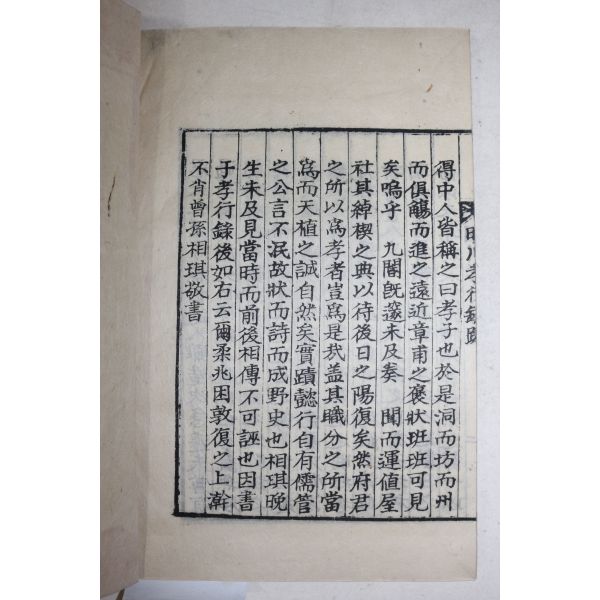 明川孝行錄跋
得中人皆稱之曰孝子也於是洞而坊而州
而俱觴而進之遠近章甫之褒狀班班可見
矣嗚乎 九閽旣邃未及奏 聞而運值屋
社其綽楔之典以待後日之陽復矣然府君
之所以爲孝者豈爲是哉盖其職分之所當
爲而天植之誠自然矣實蹟懿行自有儒管
之公言不泯故狀而詩而成野史也相琪晩
生未及見當時而前後相傳不可誣也因書
于孝行錄後如右云爾柔兆困敦復之上澣
不肖曾孫相琪敬書